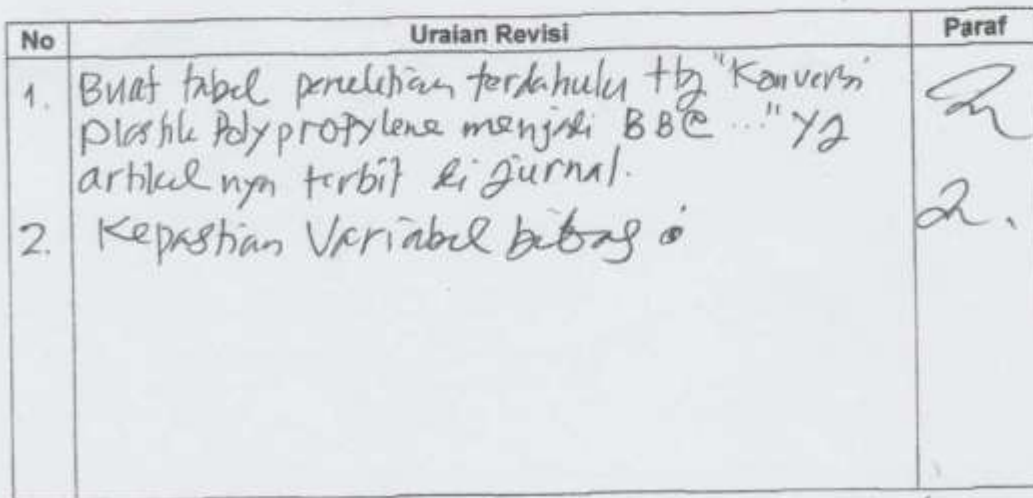 No Uraian Revisi Paraf
1. Buat tabel penelitian terdahulu ttg "Konversi
plastik Polypropylene menjadi BBC ..." yg
artikelnya terbit di jurnal.
2. Kepastian Variabel bebas